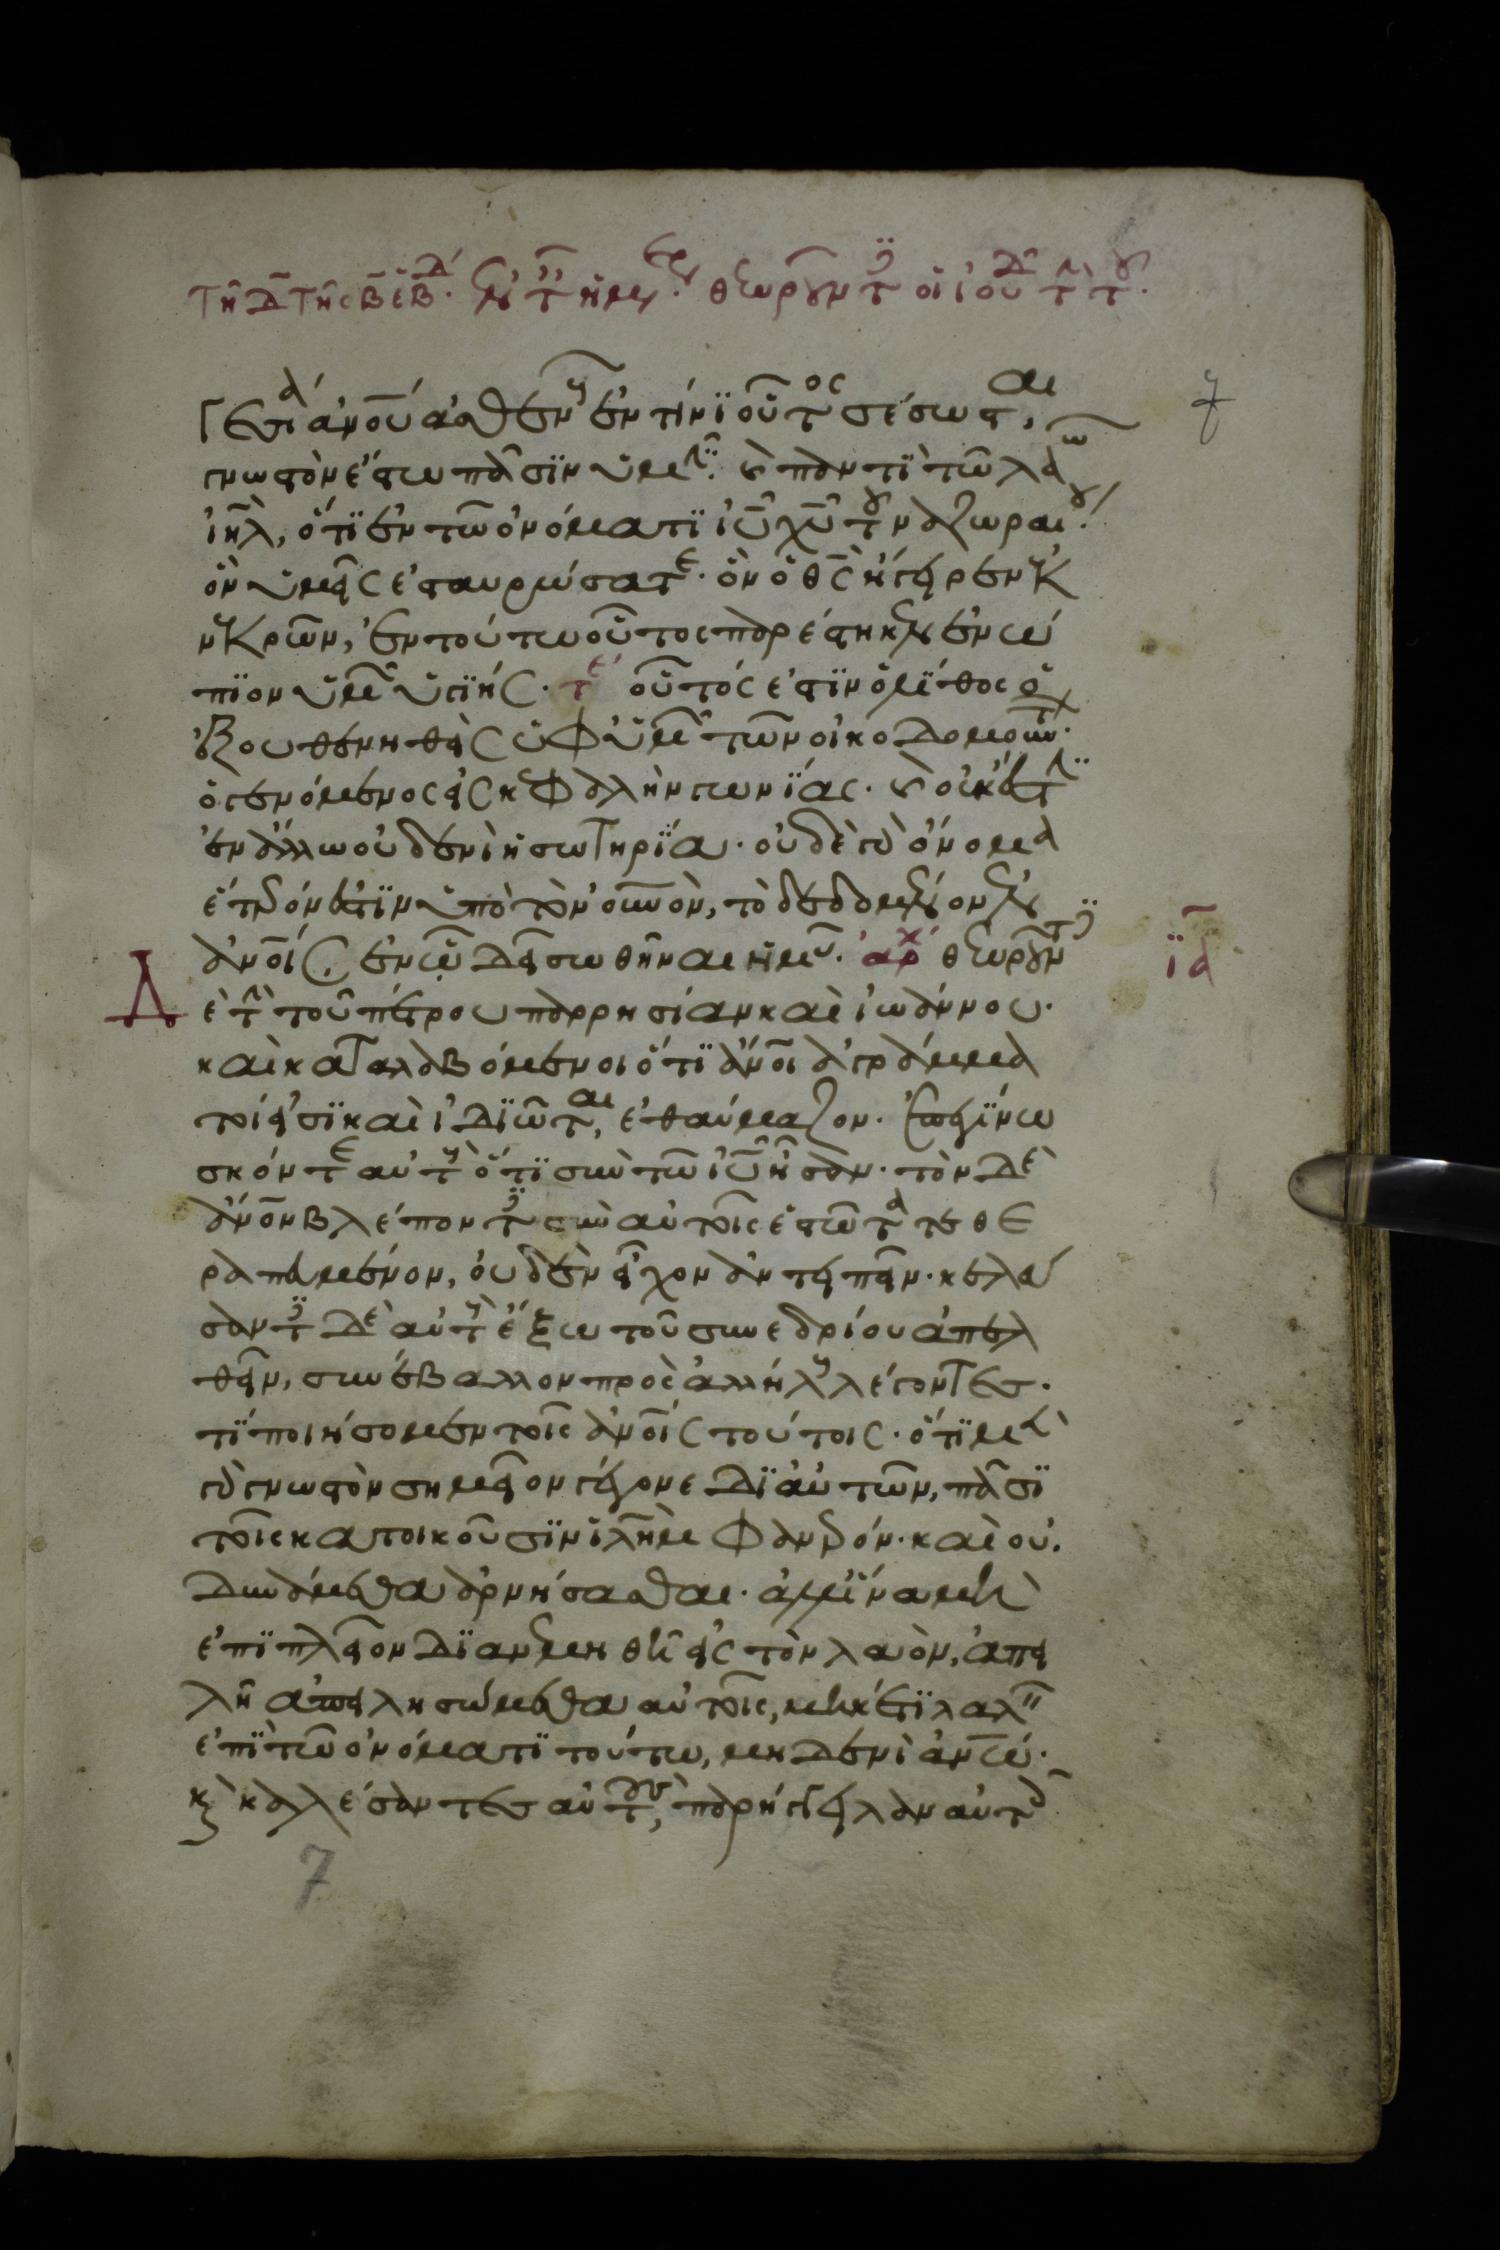 τῆ δ τῆς β ἑβδ. ἐν τ ἡμερ. θεωροῦντες οἱ ἰουδ τ τ.
γεσία ἀνοῦ ἀσθενοῦς ἐν τίνι οὗτος σέσωσται,
γνωστὸν ἔστω πᾶσιν ὑμῖν. καὶ παντὶ τῶ λαῶ
ἰηλ, ὅτι ἐν τῶ ὀνόματι ἰυ χυ τοῦ ναζωραίου.
ὃν ὑμεῖς ἐσταυρώσατε. ὃν ὁ θς ἤγειρεν ἐκ
νεκρῶν, ἐν τούτω οὗτος παρέστηκεν ἐνώ
πιον ὑμῶν ὑγιής. τε οὗτός ἐστιν ὁ λίθος ὁ
ἐξουθενηθεὶς ὑφ ὑμῶν τῶν οἰκοδομούντων.
ὁ γενόμενος εἰς κεφαλὴν γωνίας. καὶ οὐκ ἔστιν
ἐν ἄλλω οὐδενὶ ἡ σωτηρία. οὐδὲ γὰρ ὄνομα
ἕτερόν ἐστιν ὑπὸ τὸν οὐνὸν, τὸ δεδομένον ἐν
ἀνοις. ἐν ὧ δεῖ σωθῆναι ἡμᾶς. ἀρχ θεωροῦντες
ια
δὲ τὴν τοῦ πέτρου παρρησίαν καὶ ἰωάννου.
καὶ καταλαβόμενοι ὅτι ἄνοι ἀγράμμα
τοί εἰσι καὶ ἰδιῶται, ἐθαύμαζον. ἐπεγίνω
σκόν τε αὐτοὺς ὅτι σὺν τῶ ἰυ ἦσαν. τὸν δὲ
ἄνον βλέποντες σὺν αὐτοῖς ἑστῶτα τὸν τεθε
ραπευμένον, οὐδὲν εἶχον ἀντειπεῖν. κελεύ
σαντες δὲ αὐτοὺς ἔξω τοῦ συνεδρίου ἀπελ
θεῖν, συνέβαλλον πρὸς ἀλλήλους λέγοντες.
τί ποιήσομεν τοῖς ἀνοις τούτοις. ὅτι μὲν
γὰρ γνωστὸν σημεῖον γέγονε δι αὐτῶν, πᾶσι
τοῖς κατοικοῦσιν ἰλημ φανερόν. καὶ οὐ
δυνάμεθα ἀρνήσασθαι. ἀλλ ἵνα μὴ
ἐπὶ πλεῖον διανεμηθῆ εἰς τὸν λαὸν, ἀπει
λῆ ἀπειλησώμεθα αὐτοῖς, μηκέτι λαλεῖν
ἐπὶ τῶ ὀνόματι τούτω, μηδενὶ ἀνων.
καὶ καλέσαντες αὐτοὺς, παρήγγειλαν αὐτοῖς
7